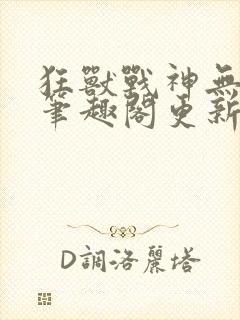 狂獸戰神無
筆趣閣更新
D調洛麗塔